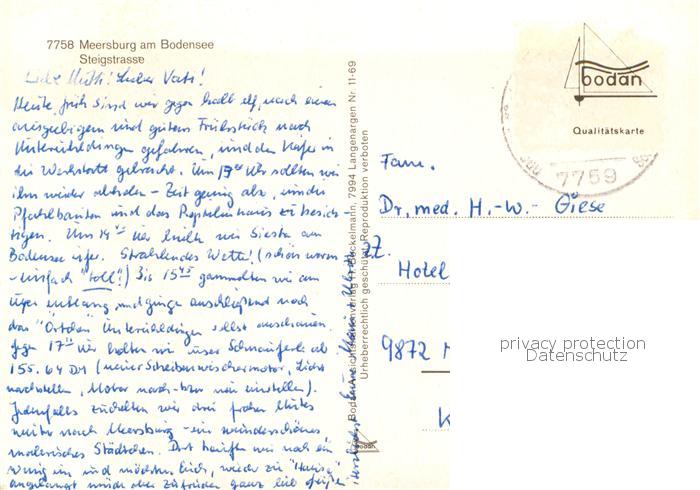 7758 Meersburg am Bodensee
Steigstrasse
Liebe Mutti! Lieber Vati!
Heute früh sind wir gegen halb elf, nach einem
ausgiebigen und gutem Frühstück nach
Unteruhldingen gefahren, und den Käfer in
die Werkstatt gebracht. Um 17°° Uhr sollten wir
ihn wieder abholen – Zeit genug also, um die
Pfahlbauten und das Reptilienhaus zu besich-
tigen. Um 14 Uhr hielten wir Siesta am
Bodensee ufer. Strahlendes Wetter! (schön warm
– einfach "toll"!) Bis 15 45 gammelten wir am
Ufer entlang, und gingen anschließend noch
das "Örtchen" Unteruhldingen selbst anschauen.
Gegen 17°° Uhr holten wir unser Schnauferle ab
155.64 DM (neuer Scheibenwischermotor, Licht
nachstellen, Motor nach- bzw neu einstellen).
Jedenfalls zuckelten wir drei frohen Mutes
weiter nach Meersburg – ein wunderschönes,
malerisches Städtchen. Dort kauften wir noch ein
wenig ein und möchten Euch, wieder zu "Hause"
angelangt müde aber zufrieden ganz lieb grüßen
Bodan-Ansichtskartenverlag F. Böckelmann, 7994 Langenargen Nr. 11-69
Urheberrechtlich geschützt - Reproduktion verboten
bodan
Qualitätskarte
7759
Fam.
Dr. med. H.-W.- Giese
z.Z.
Hotel
9872 M
K
privacy protection
Datenschutz